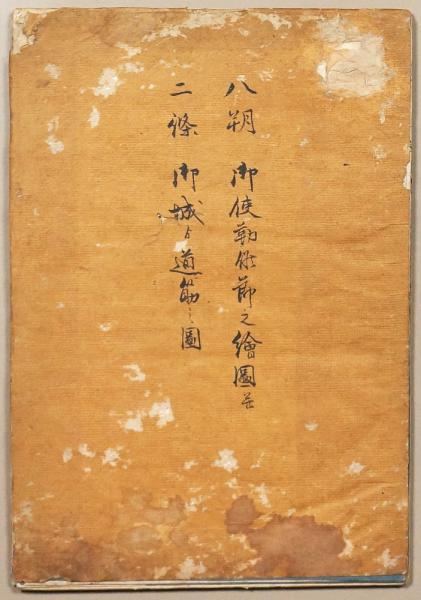 八朔 御使勤候節之繪圖并
二條 御城ゟ道筋之圖